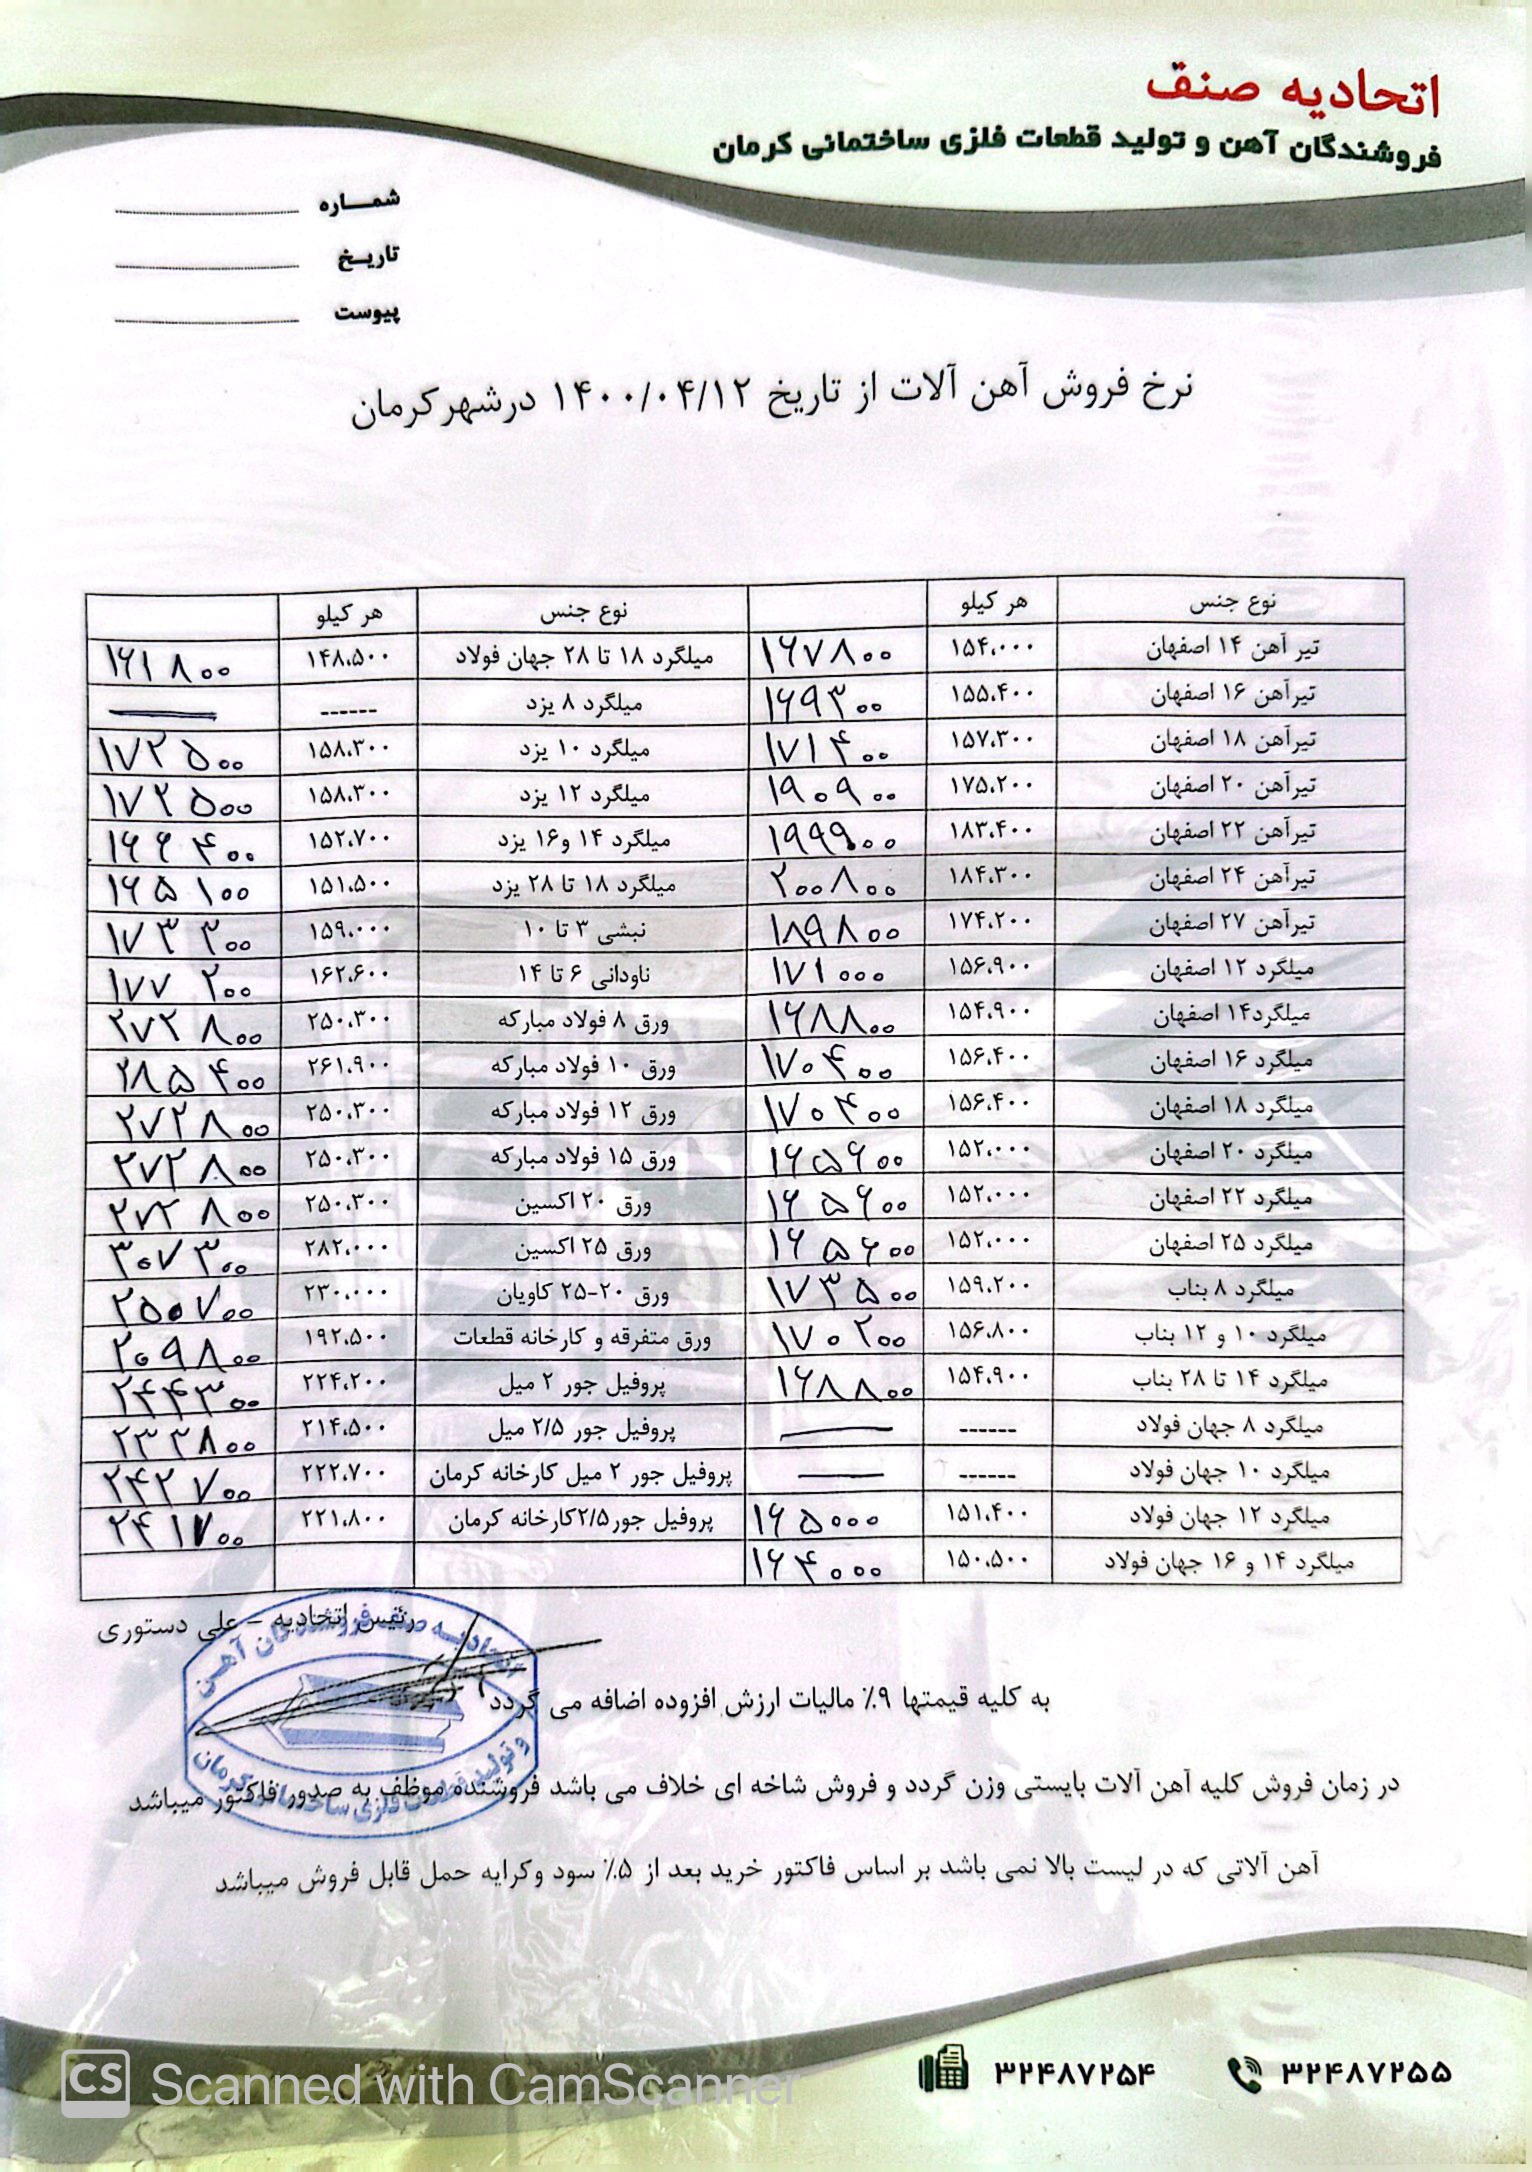 اتحادیه صنف
فروشندگان آهن و تولید قطعات فلزی ساختمانی کرمان
شمـــاره
تاریـخ
پیوست
نرخ فروش آهن آلات از تاریخ ۱۴۰۰/۰۴/۱۲ درشهرکرمان
نوع جنس هر کیلو نوع جنس هر کیلو
تیر آهن ۱۴ اصفهان ۱۵۴،۰۰۰ ۱۶۷۸۰۰ میلگرد ۱۸ تا ۲۸ جهان فولاد ۱۴۸،۵۰۰ ۱۶۱۸۰۰
تیرآهن ۱۶ اصفهان ۱۵۵،۴۰۰ ۱۶۹۳۰۰ میلگرد ۸ یزد ------
تیرآهن ۱۸ اصفهان ۱۵۷،۳۰۰ ۱۷۱۴۰۰ میلگرد ۱۰ یزد ۱۵۸،۳۰۰ ۱۷۲۵۰۰
تیرآهن ۲۰ اصفهان ۱۷۵،۲۰۰ ۱۹۰۹۰۰ میلگرد ۱۲ یزد ۱۵۸،۳۰۰ ۱۷۲۵۰۰
تیرآهن ۲۲ اصفهان ۱۸۳،۴۰۰ ۱۹۹۹۰۰ میلگرد ۱۴ و۱۶ یزد ۱۵۲،۷۰۰ ۱۶۶۴۰۰
تیرآهن ۲۴ اصفهان ۱۸۴،۳۰۰ ۲۰۰۸۰۰ میلگرد ۱۸ تا ۲۸ یزد ۱۵۱،۵۰۰ ۱۶۵۱۰۰
تیرآهن ۲۷ اصفهان ۱۷۴،۲۰۰ ۱۸۹۸۰۰ نبشی ۳ تا ۱۰ ۱۵۹،۰۰۰ ۱۷۳۳۰۰
میلگرد ۱۲ اصفهان ۱۵۶،۹۰۰ ۱۷۱۰۰۰ ناودانی ۶ تا ۱۴ ۱۶۲،۶۰۰ ۱۷۷۲۰۰
میلگرد۱۴ اصفهان ۱۵۴،۹۰۰ ۱۶۸۸۰۰ ورق ۸ فولاد مبارکه ۲۵۰،۳۰۰ ۲۷۲۸۰۰
میلگرد ۱۶ اصفهان ۱۵۶،۴۰۰ ۱۷۰۴۰۰ ورق ۱۰ فولاد مبارکه ۲۶۱،۹۰۰ ۲۸۵۴۰۰
میلگرد ۱۸ اصفهان ۱۵۶،۴۰۰ ۱۷۰۴۰۰ ورق ۱۲ فولاد مبارکه ۲۵۰،۳۰۰ ۲۷۲۸۰۰
میلگرد ۲۰ اصفهان ۱۵۲،۰۰۰ ۱۶۵۶۰۰ ورق ۱۵ فولاد مبارکه ۲۵۰،۳۰۰ ۲۷۲۸۰۰
میلگرد ۲۲ اصفهان ۱۵۲،۰۰۰ ۱۶۵۶۰۰ ورق ۲۰ اکسین ۲۵۰،۳۰۰ ۲۷۲۸۰۰
میلگرد ۲۵ اصفهان ۱۵۲،۰۰۰ ۱۶۵۶۰۰ ورق ۲۵ اکسین ۲۸۲،۰۰۰ ۳۰۷۳۰۰
میلگرد ۸ بناب ۱۵۹،۲۰۰ ۱۷۳۵۰۰ ورق ۲۰-۲۵ کاویان ۲۳۰،۰۰۰ ۲۵۰۷۰۰
میلگرد ۱۰ و ۱۲ بناب ۱۵۶،۸۰۰ ۱۷۰۲۰۰ ورق متفرقه و کارخانه قطعات ۱۹۲،۵۰۰ ۲۰۹۸۰۰
میلگرد ۱۴ تا ۲۸ بناب ۱۵۴،۹۰۰ ۱۶۸۸۰۰ پروفیل جور ۲ میل ۲۲۴،۲۰۰ ۲۴۴۳۰۰
میلگرد ۸ جهان فولاد ------ پروفیل جور ۲/۵ میل ۲۱۴،۵۰۰ ۲۳۳۸۰۰
میلگرد ۱۰ جهان فولاد ------ پروفیل جور ۲ میل کارخانه کرمان ۲۲۲،۷۰۰ ۲۴۲۷۰۰
میلگرد ۱۲ جهان فولاد ۱۵۱،۴۰۰ ۱۶۵۰۰۰ پروفیل جور۲/۵کارخانه کرمان ۲۲۱،۸۰۰ ۲۴۱۷۰۰
میلگرد ۱۴ و ۱۶ جهان فولاد ۱۵۰،۵۰۰ ۱۶۴۰۰۰
رئیس اتحادیه – علی دستوری
به کلیه قیمتها ۹٪ مالیات ارزش افزوده اضافه می گردد
در زمان فروش کلیه آهن آلات بایستی وزن گردد و فروش شاخه ای خلاف می باشد فروشنده موظف به صدور فاکتور میباشد
آهن آلاتی که در لیست بالا نمی باشد بر اساس فاکتور خرید بعد از ۵٪ سود وکرایه حمل قابل فروش میباشد
۳۲۴۸۷۲۵۴ ۳۲۴۸۷۲۵۵
CS Scanned with CamScanner